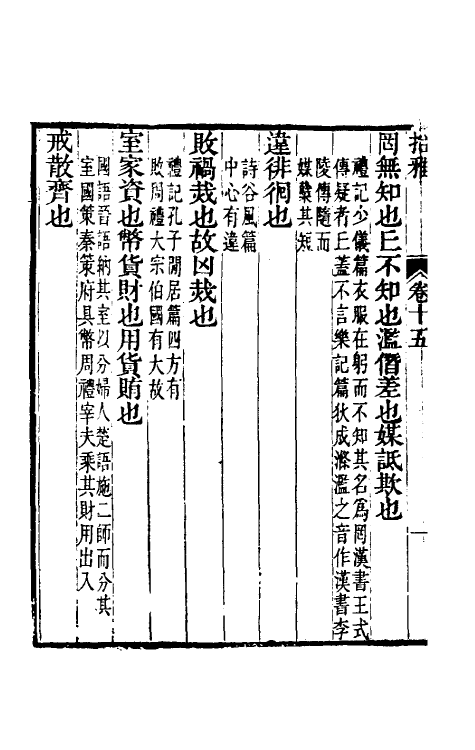 拾雅
卷十五
一
罔無知也𠀉不知也濫僭差也媒詆欺也
禮記少儀篇衣服在躬而不知其名爲罔漢書王式
傳疑者𠀉蓋不言樂記篇狄成滌濫之音作漢書李
陵傳隨而
媒糱其短
違徘徊也
詩谷風篇
中心有違
敗禍烖也故凶烖也
禮記孔子閒居篇四方有
敗周禮大宗伯國有大故
室家資也幣貨財也用貨賄也
國語晉語納其室以分婦人楚語施二師而分其
室國策秦策府具幣周禮宰夫乘其財用出入
戒散齊也